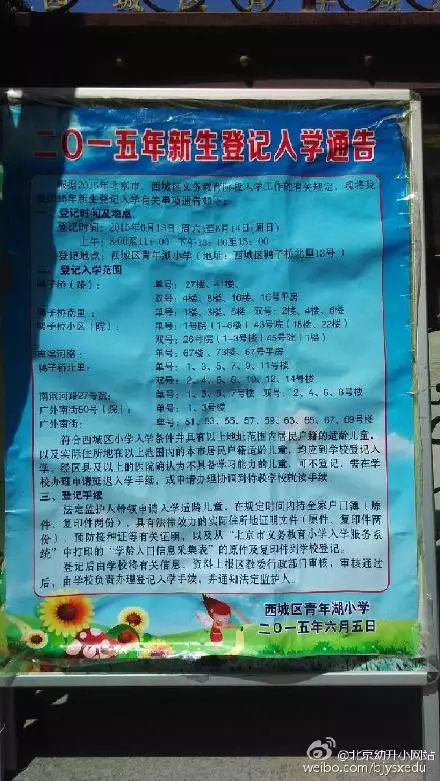 二〇一五年新生登记入学通告
根据2015年北京市、西城区义务教育阶段入学工作的有关规定，现将我
校2015年新生登记入学有关事项通告如下：
一、登记时间及地点
登记时间：2015年6月13日(周六)至6月14日(周日)
上午：8:00至11：00 下午:13：00至15：00
登记地点：西城区青年湖小学（地址：西城区鸭子桥北里13号）
二、登记入学范围
鸭子桥（路）： 单号：27楼、41楼、
双号：4楼、8楼、10楼、16号平房
鸭子桥南里： 单号：1楼、3楼、5楼 双号：2楼、4楼、6楼
鸭子桥小区（院）： 单号：1号院（1-6楼）43号院（18楼、22楼）
双号：26号院（1-3号楼）45号院（1楼）
南滨河路： 单号：67楼、73楼、67号平房
鸭子桥北里： 单号：1、3、5、7、9、11号楼
双号：2、4、6、8、10、12、14号楼
南滨河路27号院： 单号：1、3、5、7号楼 双号：2、4、6、8号楼
广外南街60号（院）： 单号：1、3号楼
广外南街： 单号：51、53、55、57、59、63、65、67、69号楼
符合西城区小学入学条件并具有以上地址范围内居民户籍的适龄儿童，
以及实际住所地在以上范围内的本市居民户籍适龄儿童，均应到学校登记入
学。经区县及以上的医院确认为不具备学习能力的儿童，可不登记，需在学
校办理申请延迟入学手续，或申请办理协调到特教学校就读手续。
三、登记手续
法定监护人带领申请入学适龄儿童，在规定时间内持全家户口簿（原
件、复印件两份），具有法律效力的实际住所地证明文件（原件、复印件两
份），预防接种证等有关证明，以及从“北京市义务教育小学入学服务系
统”中打印的“学龄人口信息采集表”的原件及复印件到学校登记。
登记后由学校将有关信息、资料上报区教委行政部门审核，审核通过
后，由学校负责办理登记入学手续，并通知法定监护人。
西城区青年湖小学
二〇一五年六月五日
@北京幼升小网站
weibo.com/bjysxedu